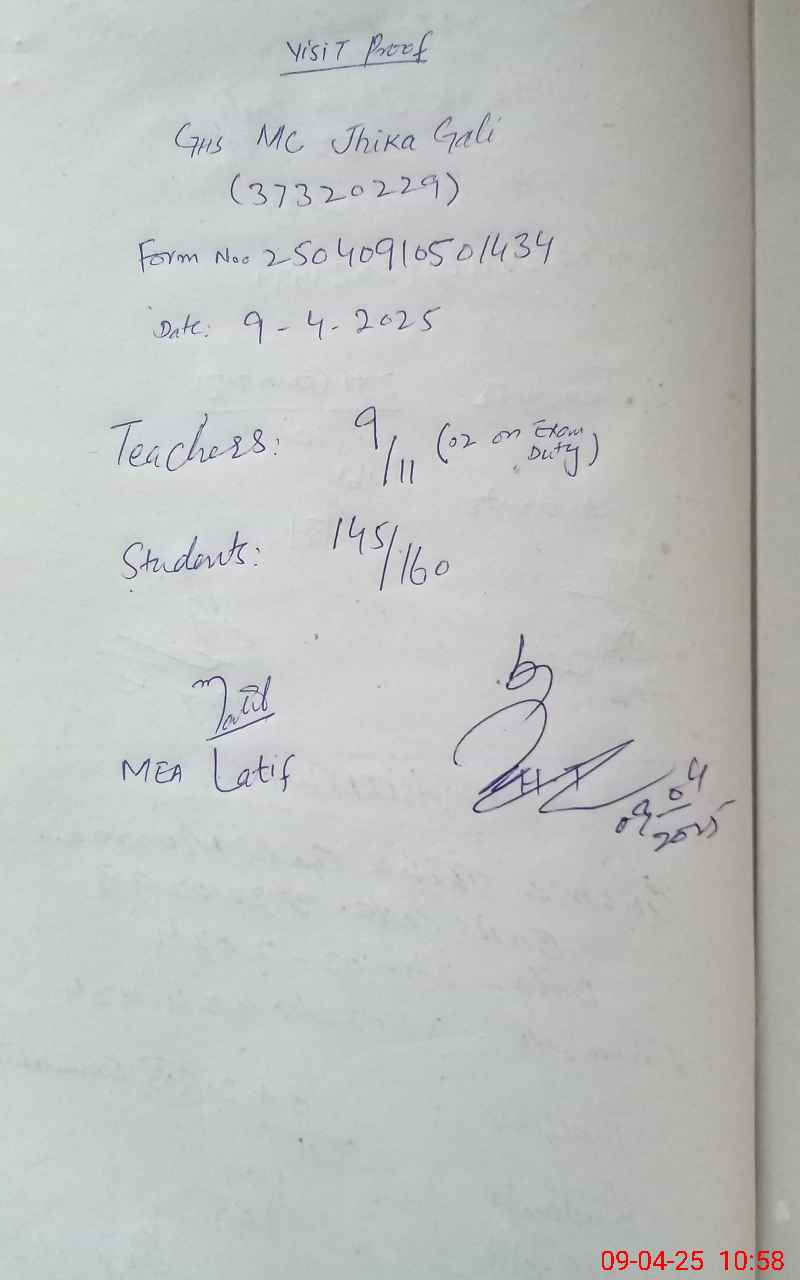 Visit Proof
GHS MC Jhika Gali
(37320229)
Form No. 25040910501434
Date: 9-4-2025
Teachers: 9/11 (02 on Exam Duty)
Students: 145/160
Latif
MEA Latif
09-04-2025
09-04-25 10:58